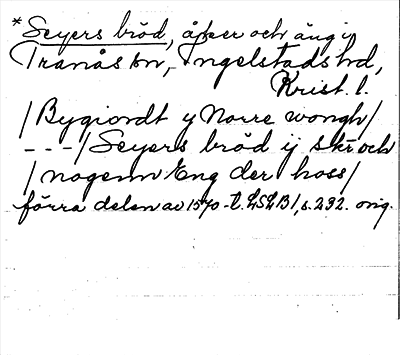 *Seyers bröd, åker och äng i
Tranås sn, Ingelstads hd,
Krist. l.
/Bygiordt y Norre wongh/
---/Seyers bröd ij skr och
/nogenn Eng der hoss/
förra delen av 1570-t. LSLB1, s. 292. orig.